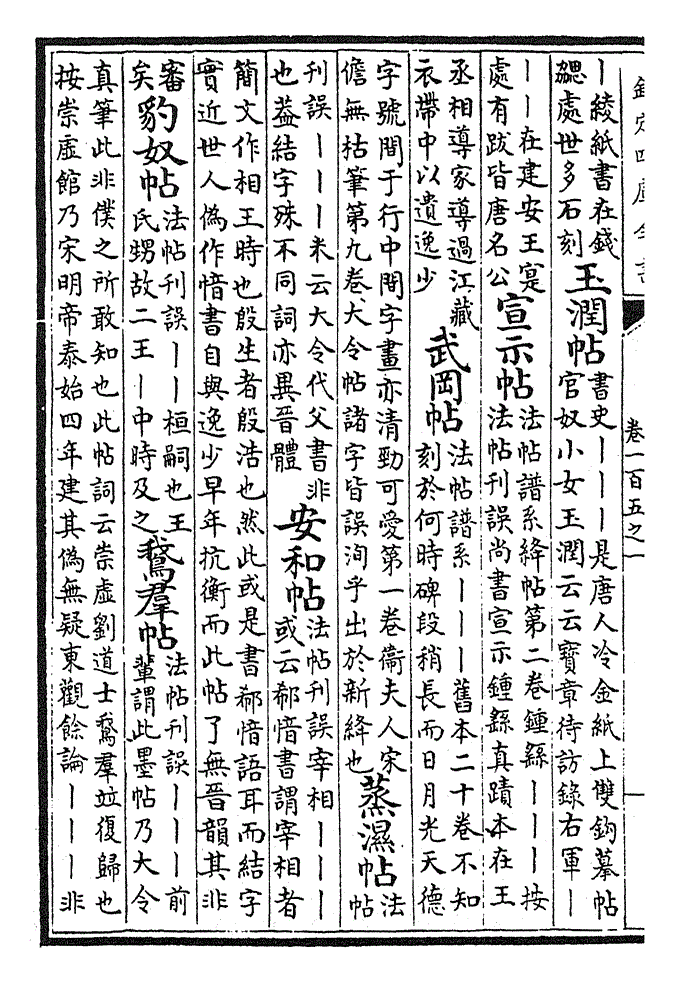 欽定四庫全書
卷一百五之一
一
丨綾紙書在錢
勰處世多石刻
玉潤帖
書史丨丨丨是唐人冷金紙上雙鉤摹帖
官奴小女玉潤云云寶章待訪錄右軍丨
丨丨在建安王寔
處有跋皆唐名公
宣示帖
法帖譜系絳帖第二卷鍾繇丨丨丨按
法帖刊誤尚書宣示鍾繇真蹟本在王
丞相導家導過江藏
衣帶中以遺逸少
武岡帖
法帖譜系丨丨丨舊本二十卷不知
刻於何時碑段稍長而日月光天德
字號間于行中間字畫亦清勁可愛第一卷衞夫人宋
儋無枯筆第九卷大令帖諸字皆誤洵乎出於新絳也
蒸濕帖
法
帖
刊誤丨丨丨米云大令代父書非
也葢結字殊不同詞亦異晉體
安和帖
法帖刊誤宰相丨丨丨
或云郗愔書謂宰相者
簡文作相王時也殷生者殷浩也然此或是書郗愔語耳而結字
實近世人偽作愔書自與逸少早年抗衡而此帖了無晉韻其非
審
矣
豹奴帖
法帖刊誤丨丨桓嗣也王
氏甥故二王丨中時及之
鵞羣帖
法帖刊誤丨丨丨前
輩謂此墨帖乃大令
真筆此非僕之所敢知也此帖詞云崇虛劉道士鵞羣竝復歸也
按崇虛館乃宋明帝泰始四年建其偽無疑東觀餘論丨丨丨非